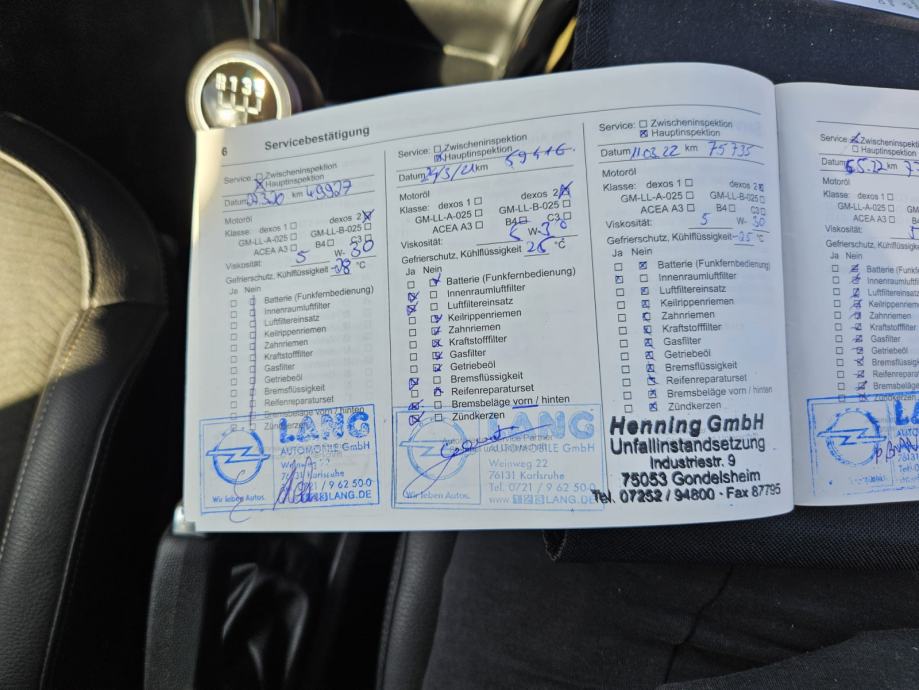 6 Servicebestätigung
Service: ☐ Zwischeninspektion
☒ Hauptinspektion
Datum km 49927
Motoröl
Klasse: dexos 1 ☐ dexos 2 ☒
GM-LL-A-025 ☐ GM-LL-B-025 ☐
ACEA A3 ☐ B4 ☐ C3 ☐
Viskosität: 5 W- 30
Gefrierschutz, Kühlflüssigkeit -28 °C
Ja Nein
Batterie (Funkfernbedienung)
Innenraumluftfilter
Luftfiltereinsatz
Keilrippenriemen
Zahnriemen
Kraftstofffilter
Gasfilter
Getriebeöl
Bremsflüssigkeit
Reifenreparaturset
Bremsbeläge vorn / hinten
Zündkerzen
LANG
AUTOMOBILE GmbH
Weinweg 22
76131 Karlsruhe
Tel. 0721 / 9 62 50-0
www. LANG.DE
Wir leben Autos.
Service: ☐ Zwischeninspektion
☒ Hauptinspektion
Datum 24/3/21 km
Motoröl
Klasse: dexos 1 ☐ dexos 2 ☒
GM-LL-A-025 ☐ GM-LL-B-025 ☐
ACEA A3 ☐ B4 ☐ C3 ☐
Viskosität: 5 W- 30
Gefrierschutz, Kühlflüssigkeit 26 °C
Ja Nein
Batterie (Funkfernbedienung)
Innenraumluftfilter
Luftfiltereinsatz
Keilrippenriemen
Zahnriemen
Kraftstofffilter
Gasfilter
Getriebeöl
Bremsflüssigkeit
Reifenreparaturset
Bremsbeläge vorn / hinten
Zündkerzen
LANG
AUTOMOBILE GmbH
Weinweg 22
76131 Karlsruhe
Tel. 0721 / 9 62 50-0
www. LANG.DE
Wir leben Autos.
Service: ☐ Zwischeninspektion
☒ Hauptinspektion
Datum 11.03.22 km 75735
Motoröl
Klasse: dexos 1 ☐ dexos 2 ☒
GM-LL-A-025 ☐ GM-LL-B-025 ☐
ACEA A3 ☐ B4 ☐ C3 ☐
Viskosität: 5 W- 30
Gefrierschutz, Kühlflüssigkeit -25 °C
Ja Nein
Batterie (Funkfernbedienung)
Innenraumluftfilter
Luftfiltereinsatz
Keilrippenriemen
Zahnriemen
Kraftstofffilter
Gasfilter
Getriebeöl
Bremsflüssigkeit
Reifenreparaturset
Bremsbeläge vorn / hinten
Zündkerzen
Henning GmbH
Unfallinstandsetzung
Industriestr. 9
75053 Gondelsheim
Tel. 07252 / 94800 · Fax 87795
Service: Zwischeninspektion
☐ Hauptinspektion
Datum
Motoröl
Klasse: dexos 1 ☐
GM-LL-A-025 ☐
ACEA A3 ☐
Viskosität:
Gefrierschutz, Kühlflüssig
Ja Nein
Batterie (Funkfer
Innenraumluftfilte
Luftfiltereinsatz
Keilrippenriemen
Zahnriemen
Kraftstofffilter
Gasfilter
Getriebeöl
Bremsflüssigkeit
Reifenrepara
Bremsbeläge